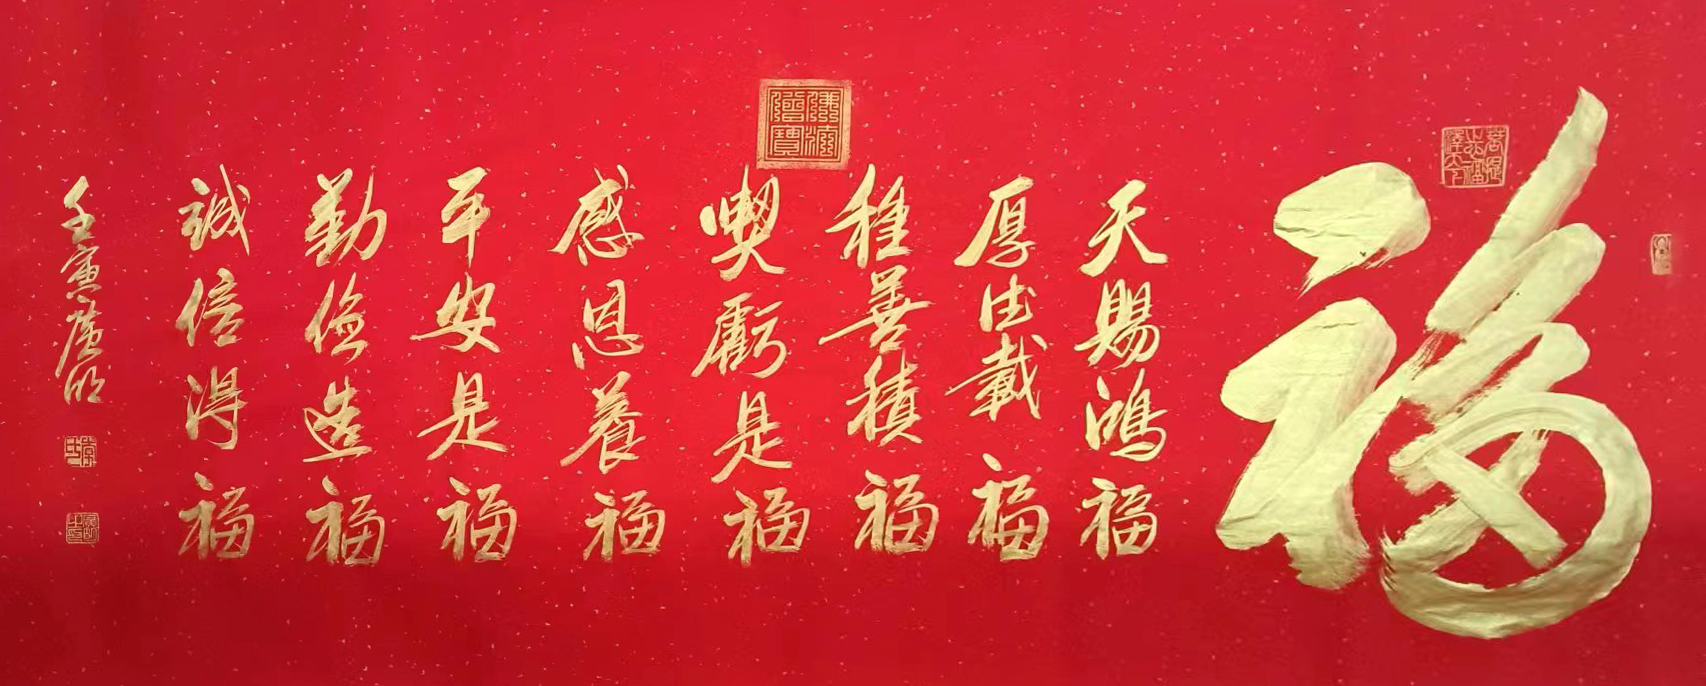 福
天賜鴻福
厚德載福
種善積福
喫虧是福
感恩養福
平安是福
勤儉造福
誠信得福
壬寅廣明